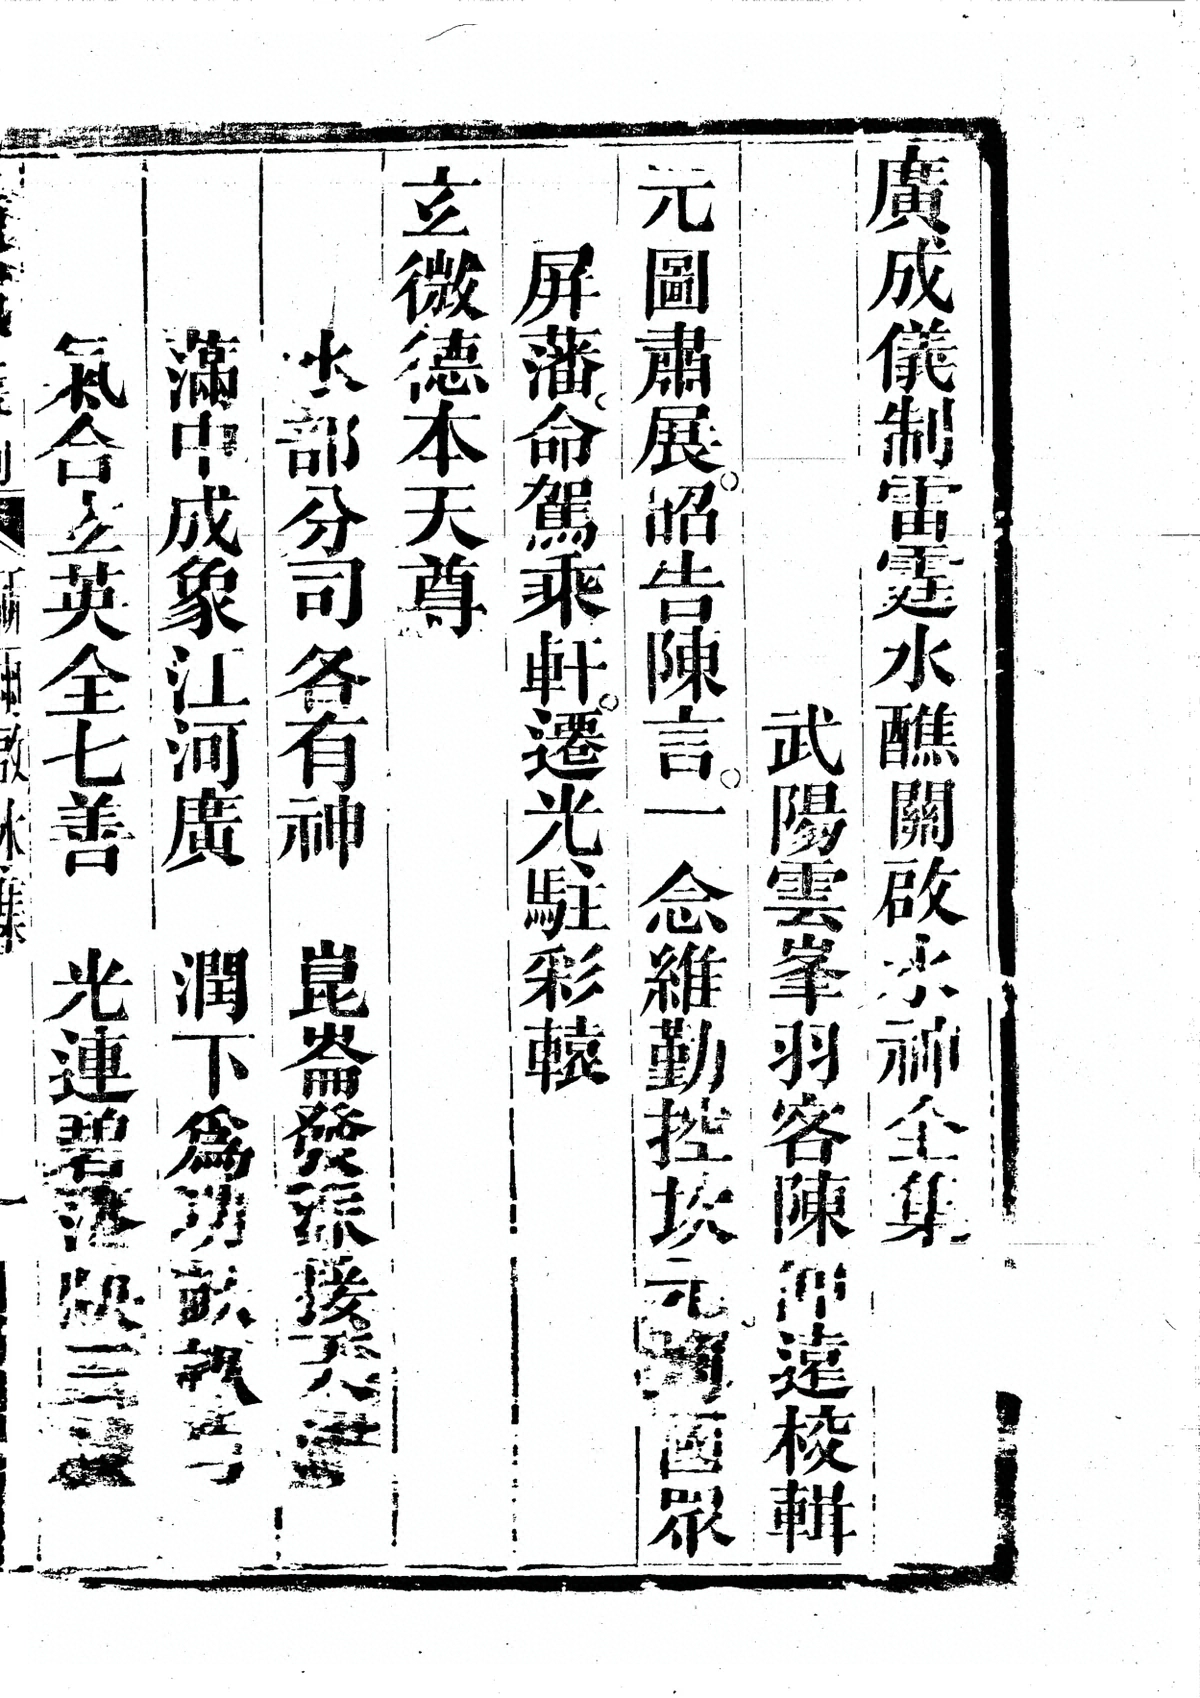 廣成儀制雷霆水醮關啟水神全集
武陽雲峯羽客陳仲遠校輯
元圖肅展。昭告陳言。一念維勤控坎元 國眾
屏藩。命駕乘軒。遷光駐彩轅
玄微德本天尊
水部分司各有神 崑崙發派接天
滿中成象江河廣 潤下為功
氣合玄英全七善 光連碧落 三